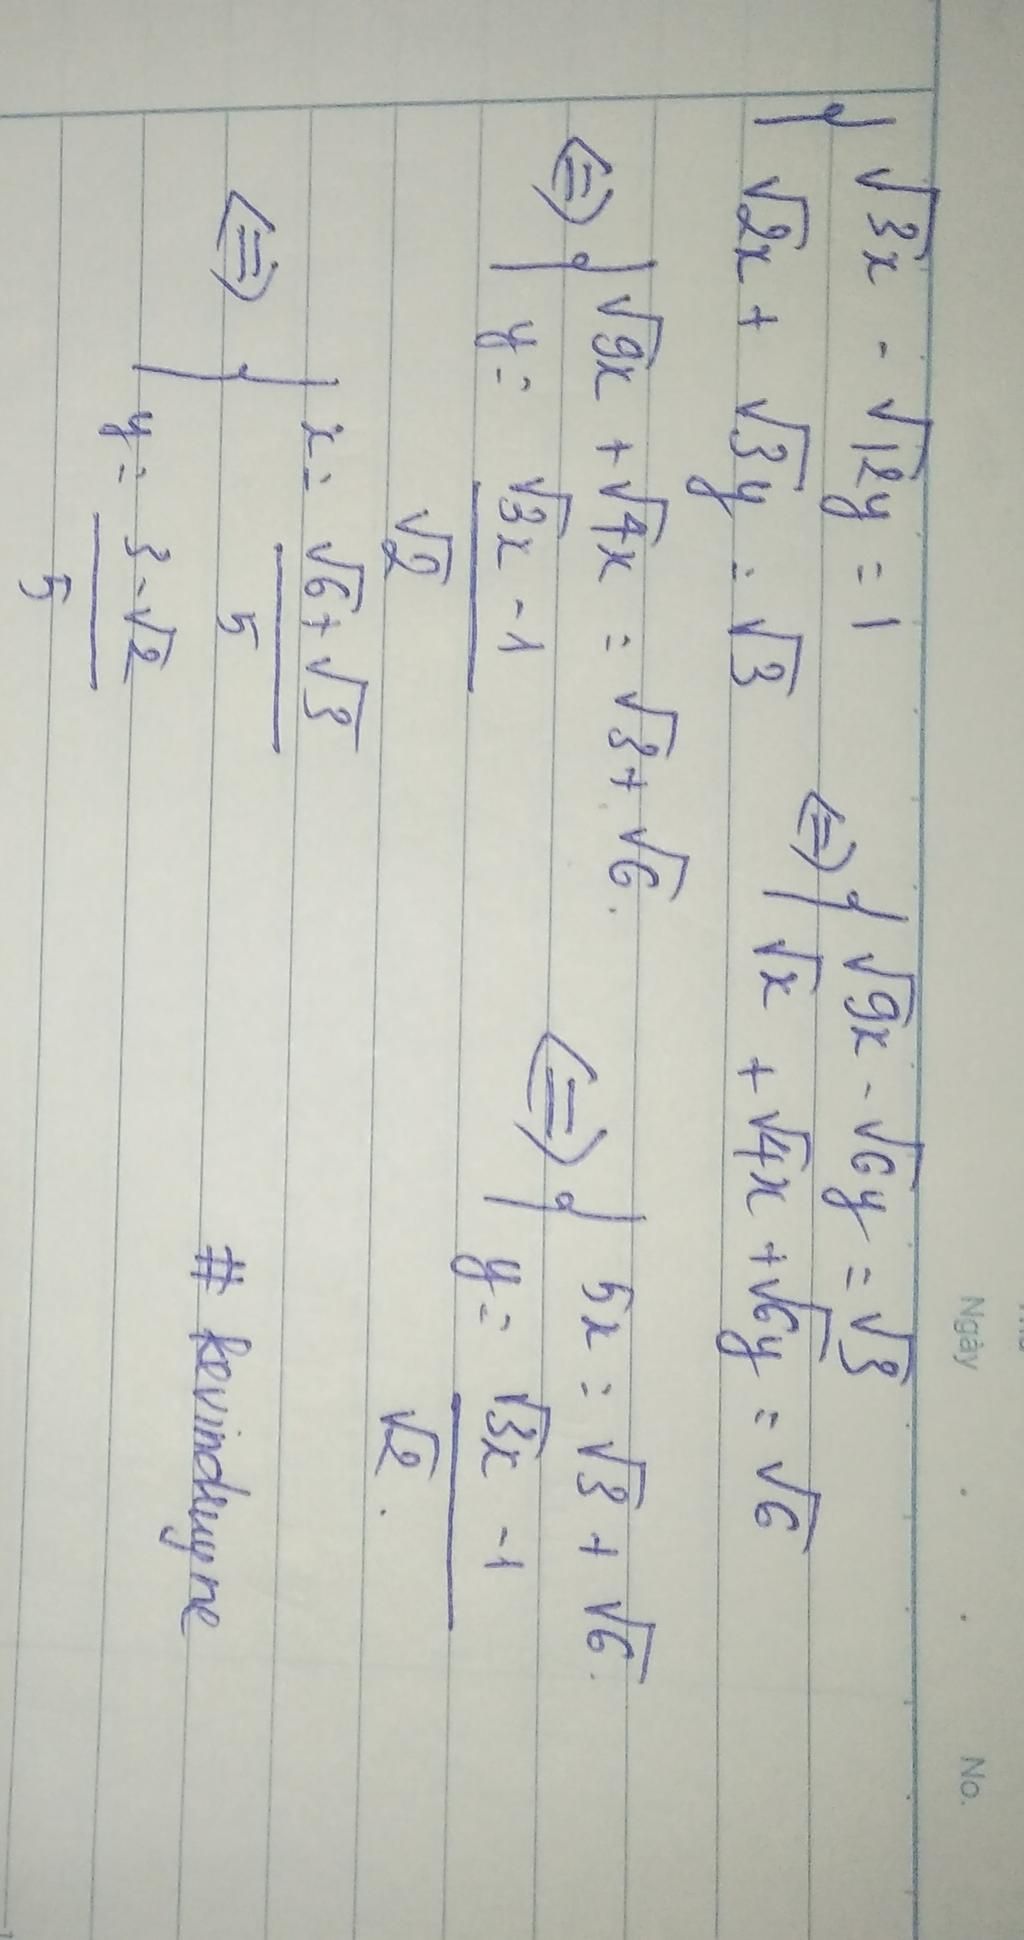 Ngày
No.
{ √3x - √12y = 1 <=> { √9x - √6y = √3
√2x + √3y = √3 √x + √4x + √6y = √6
<=> { √9x + √4x = √3 + √6. <=> { 5x = √3 + √6.
y = (√3x - 1)/√2 y = (√3x - 1)/√2.
<=> { x = (√6 + √3)/5
y = (3 - √2)/5
# kevindruyne